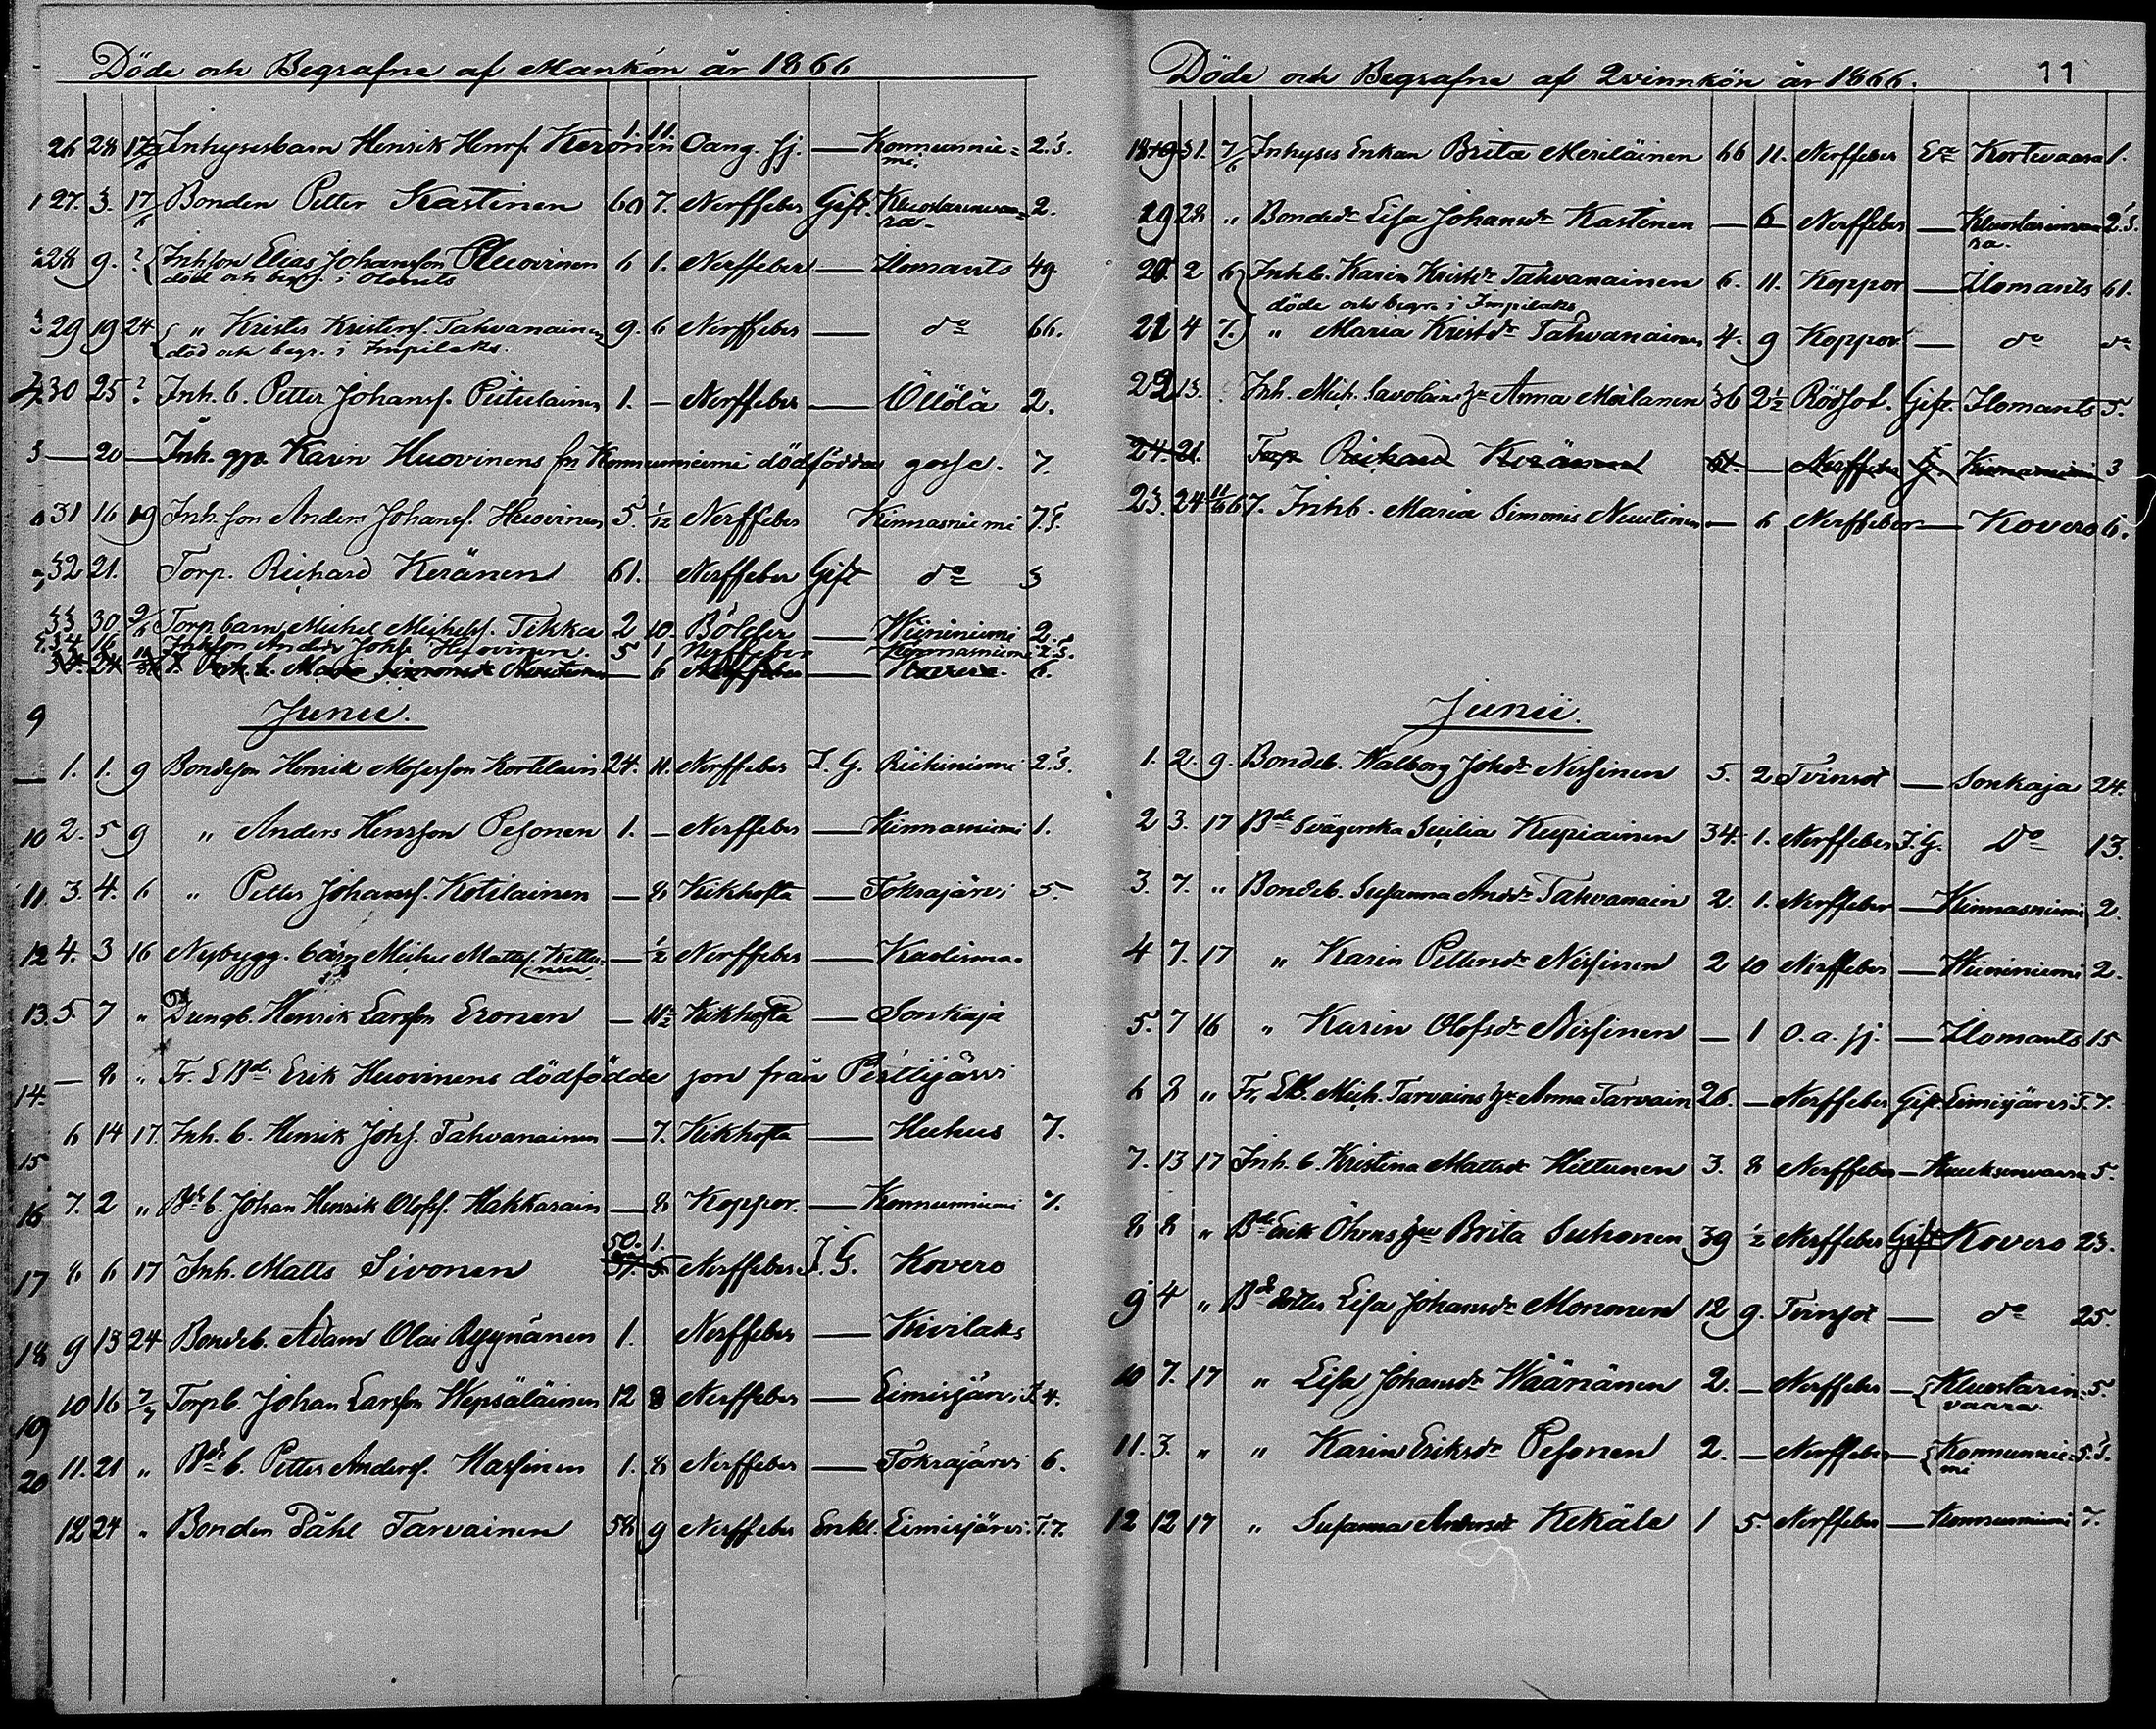 Döde och Begrafne af Mankön år 1866
26 28 17/6 Inhysesbarn Henrik Henrs. Keronen 1. 11. Oang. sj. — Konnunnie=mi 2.3.
27. 3. 17/6 Bonden Petter Kastinen 60 7. Nerffeber Gift. 2.
28 9. ? Inhson Elias Johansson Huovinen 6 1. Nerffeber — Ilomants 49
död och begr. i
29 19 24 " Krister Kristers. Tahvanainen 9. 6 Nerffeber — do 66.
död och begr. i Impilaks.
30 25 ? Inh. b. Petter Johanss. Piitulainen 1. — Nerffeber — Öllölä 2.
— 20 — Inh. qp. Karin Huovinens fr. Konnunniemi dödfödda gosse. 7.
31 16 19 Inh. son Anders Johanss. Huovinen 5. 1/12 Nerffeber Kinnasniemi 7.3.
32 21. Torp. Richard Keränen 61. Nerffeber Gift do 3
33 30 9/6 Torp. barn Michel Michelss. Tikka 2 10. Bölder — Wiininiemi 2.
34 16 Inhson Anders Johs. Huovinen. 5 1 Nerffeber Kinnasniemi 7.3.
24 Inh. b. Maria Simonsdr Nuutinen — 6 Nerffeber — Kovero. 6.
Junii.
1. 1. 9 Bondeson Henrik Mosesson Kortelain 24. 11. Nerffeber I. G. Riihiniemi 2.3.
2. 5 9 " Anders Henrsson Pesonen 1. — Nerffeber — Kinnasniemi 1.
3. 4. 6 " Petter Johanss. Kotilainen — 8 Kikhosta — Tokrajärvi 5.
4. 3 16 Nybygg. barn Michel Matts. Kettunen — ½ Nerffeber —
5. 7 " Drengb. Henrik Larsson Eronen — 11½ Kikhosta — Sonkaja
— 8 " Fr. L. Bd. Erik Huovinens dödfödde son från
6 14 17. Inh. b. Henrik Johs. Tahvanainen — 7. Kikhosta — Huhus 7.
7. 2 " Bd b. Johan Henrik Olofs. Hakkarain — 8 Koppor. — Konnunniemi 7.
50. 1.
8 6 17 Inh. Matts Sivonen Nerffeber I. G. Kovero
9 13 24 Bondeb. Adam Olai Ryynänen 1. Nerffeber — Kivilaks
10 16 Torpb. Johan Larsson Wepsäläinen 12 8 Nerffeber — Eimisjärvi T. 4.
11. 21 " Bd b. Petter Anderss. Hassinen 1. 8 Nerffeber — Tokrajärvi 6.
12 24 " Bonden Påhl Tarvainen 58 9 Nerffeber Enkl. Eimisjärvi. T. 7.
Döde och Begrafne af Qvinnkön år 1866. 11
31. 7/6 Inhyses Enkan Brita Meriläinen 66 11. Nerffeber Ea Kortevaara 1.
28 " Bondedr Lisa Johansdr Kastinen — 6 Nerffeber — 2.3.
20. 2 6 Inhb. Karin Kristdr Tahvanainen 6. 11. Koppor — Ilomants 61.
döde och begr. i Impilaks
21 4 7. " Maria Kristdr Tahvanainen 4. 9 Koppor — do do
22 13. Inh. Mich. Savolains hu Anna Moilanen 36 2½ Rödsot. Gift. Ilomants 5.
24. 21. Torp Richard Keränen 61. — Nerffeber G. Kinnasniemi 3
23. 24 11/6 67. Inhb. Maria Simonis Nuutinen — 6 Nerffeber — Kovero 6.
Junii.
1. 2. 9. Bondeb. Walborg Johdr Nissinen 5. 2 Tvinsot — Sonkaja 24.
2 3. 17 Bde Svägerska Secilia Kupiainen 34. 1. Nerffeber I. G. Do 13.
3. 7. " Bondeb. Susanna Andrdr Tahvanain 2. 1. Nerffeber — Kinnasniemi 2.
4 7. 17 " Karin Pettersdr Nissinen 2 10 Nerffeber — Wiininiemi 2.
5. 7 16 " Karin Olofsdr Nissinen — 1 O. a. sj. — Ilomants 15
6 8 " Fr. LB. Mich. Tarvains hu Anna Tarvain 26. — Nerffeber Gift Eimisjärvi T. 7.
7. 13 17 Inh. b. Kristina Mattsdr Hiltunen 3. 8 Nerffeber — Huuksenvaara 5.
8 8 " Bde Erik Öhrns hu Brita Suhonen 39 ½ Nerffeber Gift Kovero 23.
9 4 " Bde dotter Lisa Johansdr Mononen 12 9. Tvinsot — do 25.
10 7. 17 " Lisa Johansdr Wäänänen 2. — Nerffeber — Kluostarinvaara. 5.
11. 3. " " Karin Eriksdr Pesonen 2. — Nerffeber — Konnunniemi 5.3.
12 12 17 " Susanna Andersdr Kekäle 1 5. Nerffeber — Konnunniemi 7.